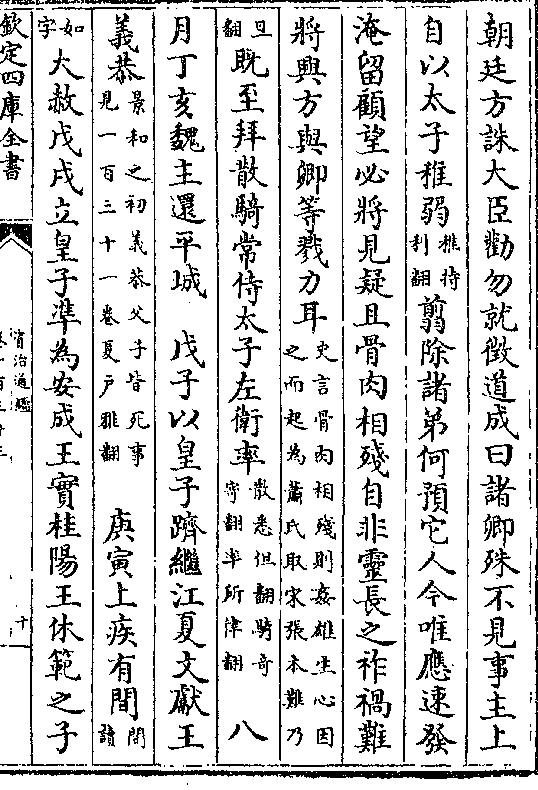 朝廷方誅大臣勸勿就徵道成曰諸卿殊不見事主上
自以太子稚弱稚持利翻翦除諸弟何預它人今唯應速發
淹留顧望必將見疑且骨肉相殘自非靈長之祚禍難
將興方與卿等戮力耳史言骨肉相殘則姦雄生心因之而起為蕭氏取宋張本難乃
旦翻既至拜散騎常侍太子左衛率散悉但翻騎奇寄翻率所律翻八
月丁亥魏主還平城　戊子以皇子躋繼江夏文獻王
義恭景和之初義恭父子皆死事見一百三十一卷夏戶雅翻　庚寅上疾有間間讀
如字大赦戊戌立皇子準為安成王實桂陽王休範之子
欽定四庫全書
資治通鑑
卷一百三十三
十